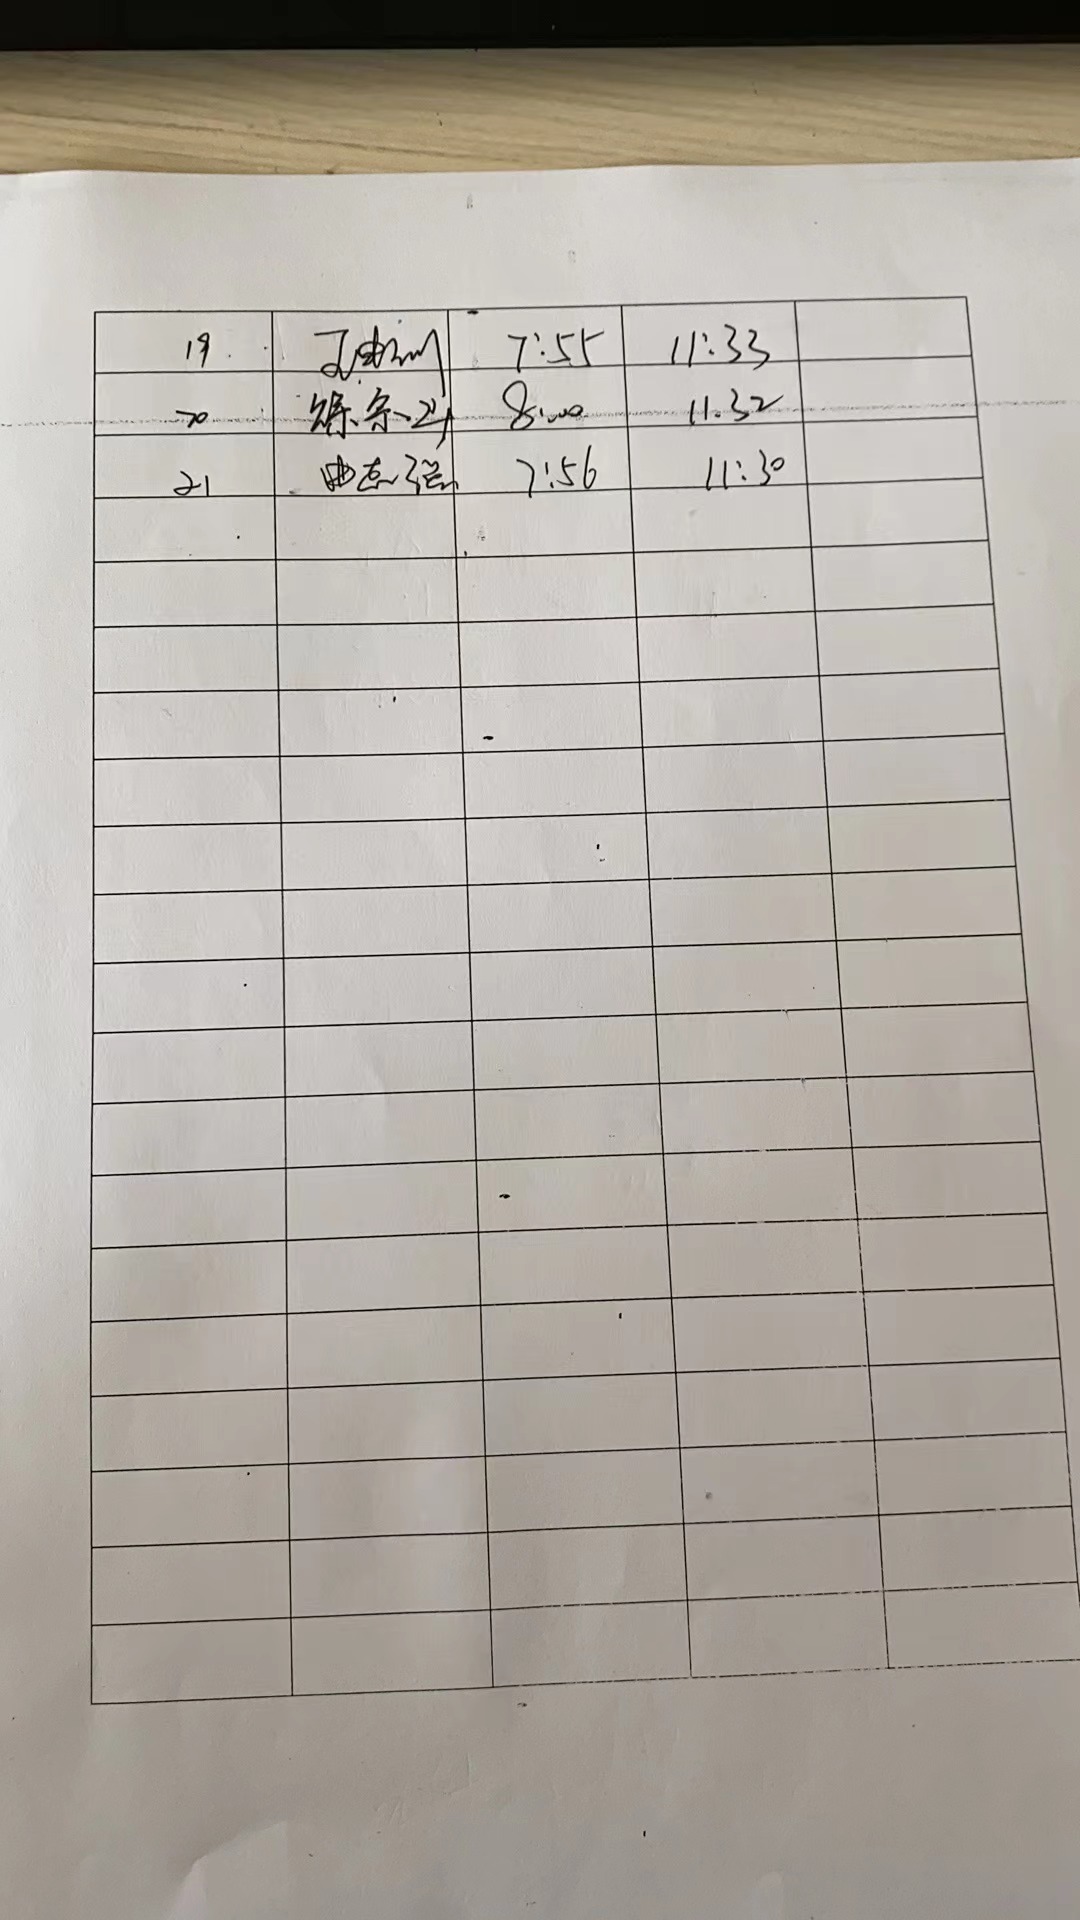 19 7:55 11:33
20 8:00 11:32
21 曲志强 7:56 11:30